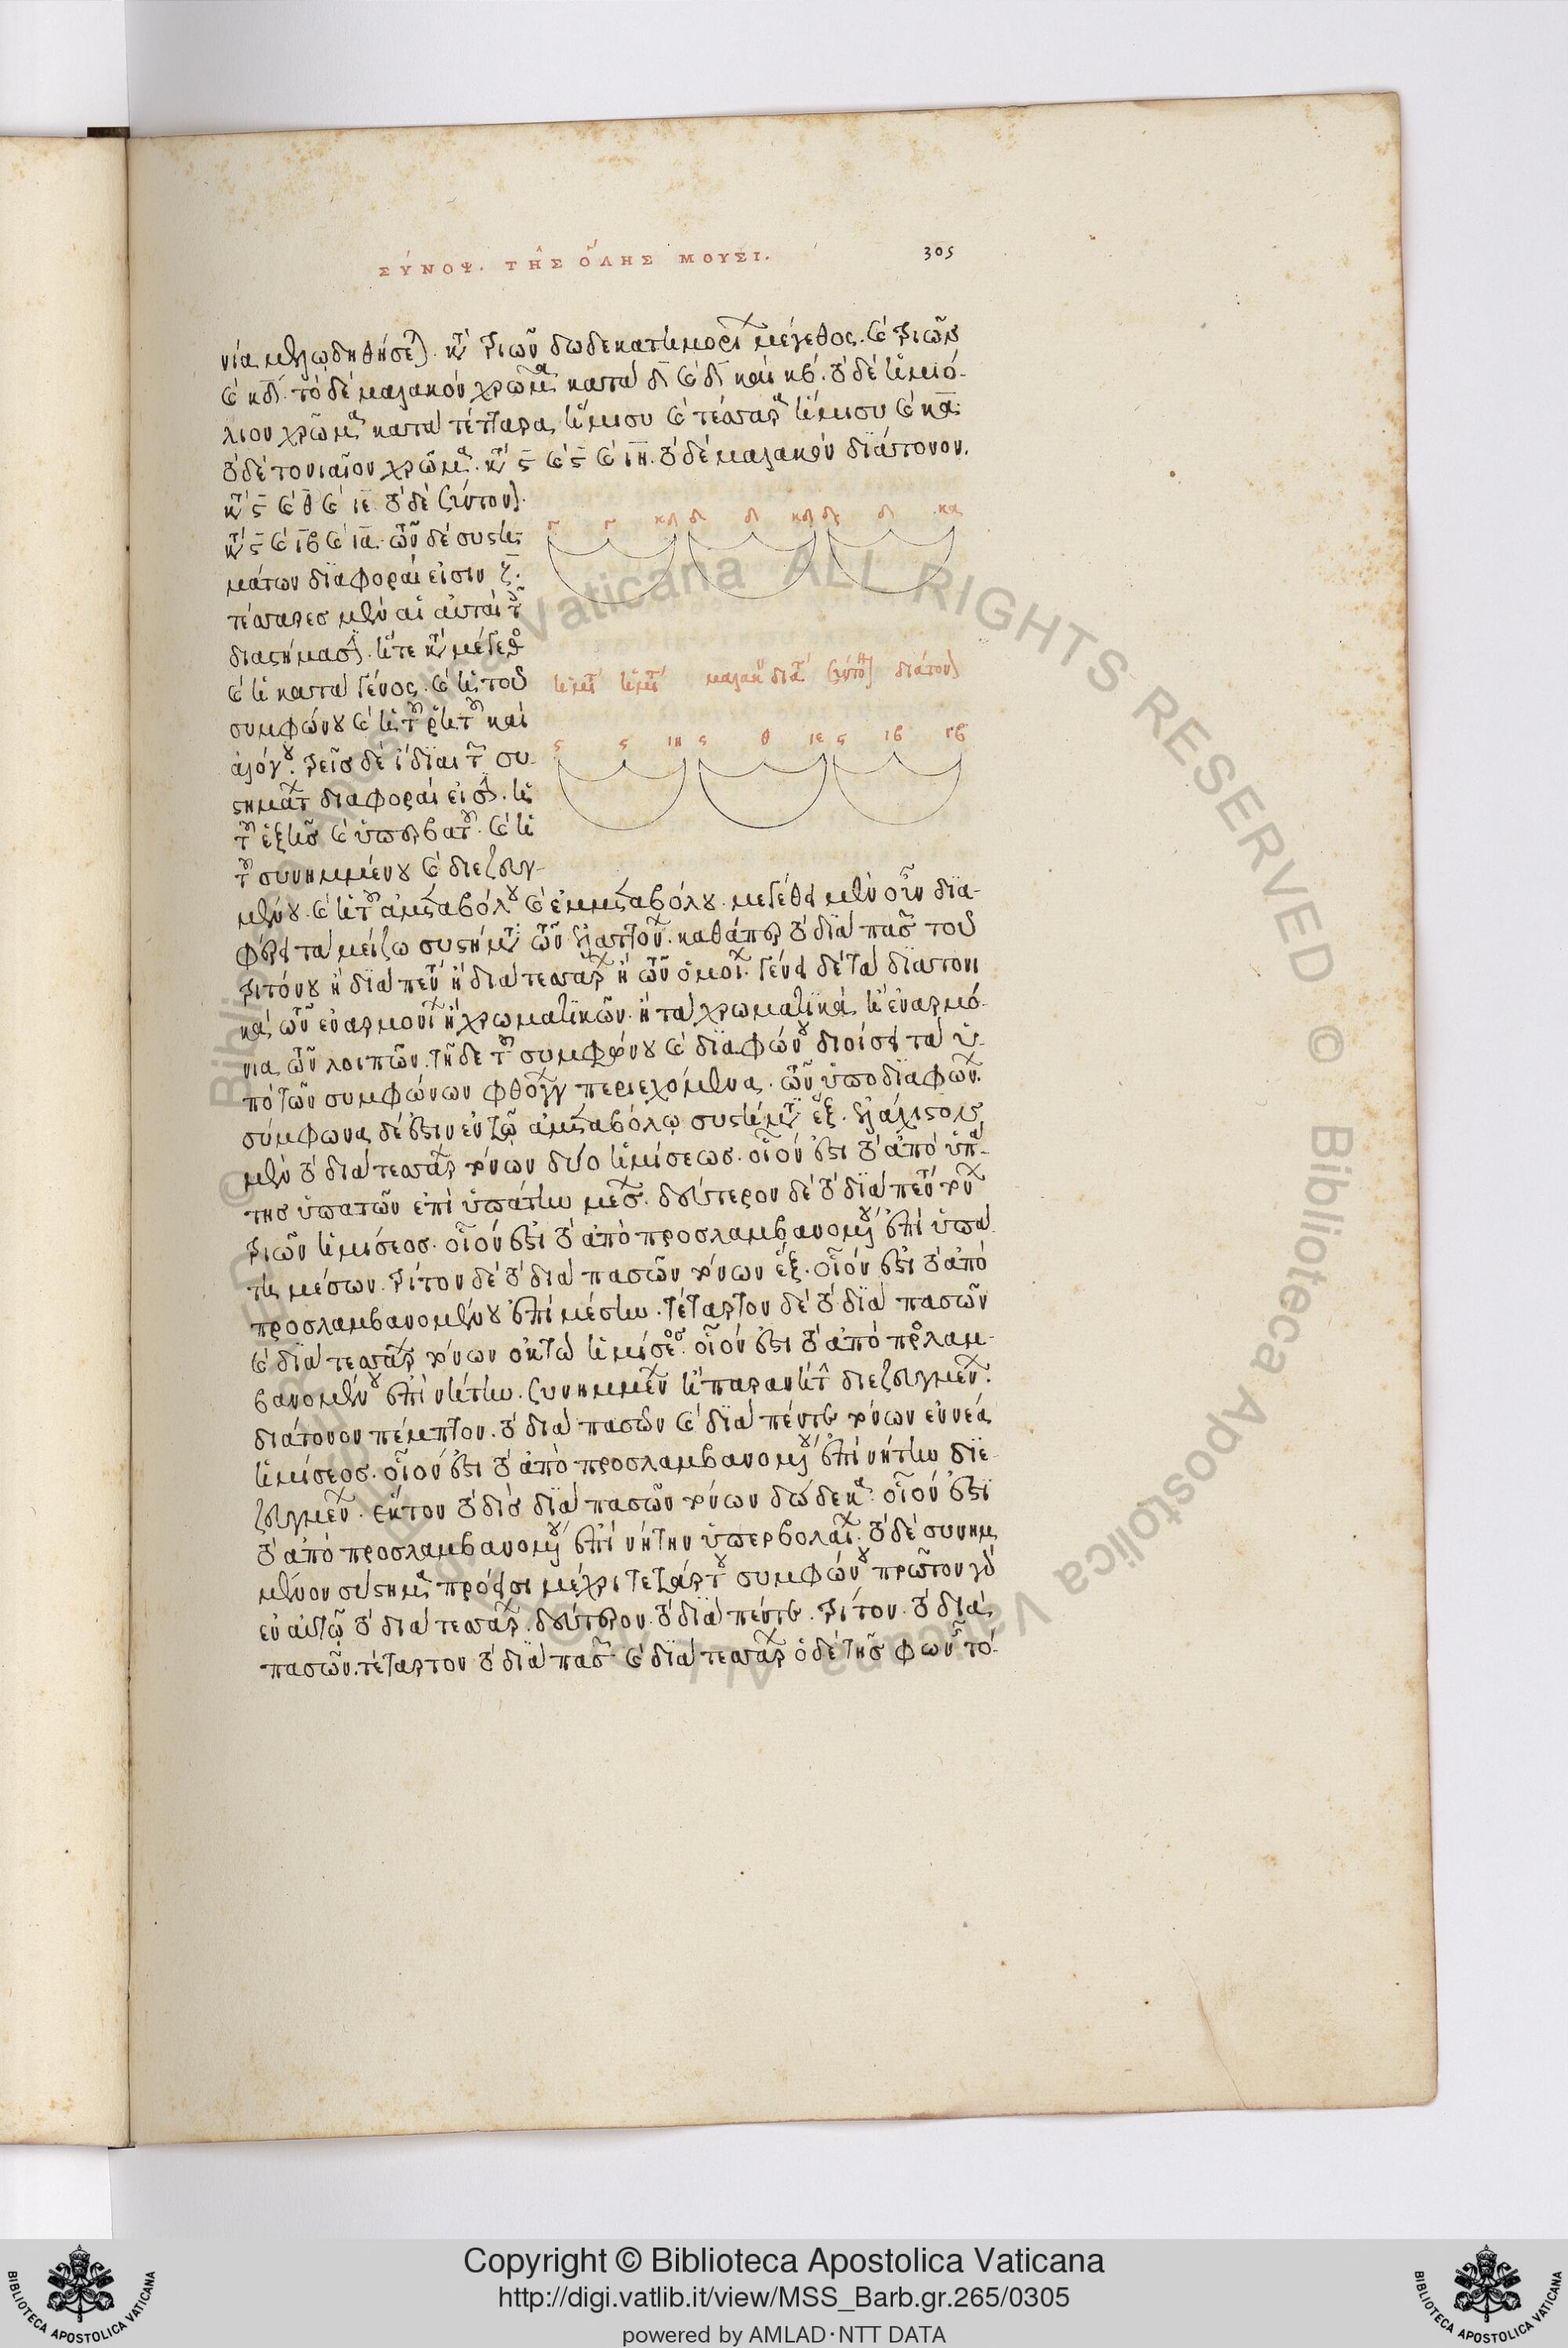 ΣΎΝΟΨ. ΤΗ͂Σ Ὅ́ΛΗΣ ΜΟΥΣΙ.
305
νία μελῳδηθήσετ. κτ τριῶν δωδεκατημορι μέγεθος. καὶ τριῶν
καὶ κδ. τὸ δὲ μαλακὸν χρῶμα κατὰ δ καὶ δ καὶ κβ. τὸ δὲ ἡμιό-
λιον χρῶμα κατὰ τέτταρα ἥμισυ καὶ τέσσαρα ἥμισυ καὶ κα.
τὸ δὲ τονιαῖον χρῶμα. κτ ς καὶ ς καὶ ιη. τὸ δὲ μαλακὸν διάτονον.
κτ ς καὶ θ καὶ ιε. τὸ δὲ σύντον
κτ ς καὶ ιβ καὶ ια. τῶν δὲ συστη-
μάτων διαφοραί εἰσιν ζ.
τέσσαρες μὲν αἱ αὐταὶ τ
διαστήμασ. ἥτε κτ μέγεθ
καὶ ἡ κατὰ γένος. καὶ ἡ τοῦ
συμφώνου καὶ ἡ τ ῥητ καὶ
ἀλόγου. τρεῖς δὲ ἴδιαι τ συ-
στηματ διαφοραί εἰσ. ἡ
τ ἑξῆς καὶ ὑπερβατ. καὶ ἡ
τ συνημμένου καὶ διεζευγ-
μένου. καὶ ἡ τ ἀμεταβόλου καὶ ἐμμεταβόλου. μεγέθει μὲν οὖν δια-
φέρει τὰ μείζω συστήμτ τῶν ἐλαττον. καθάπερ τὸ διὰ πασ τοῦ
τριτόνου ἢ διὰ πεν ἢ διὰ τεσσαρ ἢ τῶν ὁμοι. γένει δὲ τὰ διατονι
κὰ τῶν ἐναρμονι ἢ χρωματικῶν. ἢ τὰ χρωματικὰ ἢ ἐναρμό-
νια τῶν λοιπῶν. τῇ δὲ τ συμφώνου καὶ διαφώνου διοίσει τὰ ὑ-
πὸ τῶν συμφώνων φθογγ περιεχόμενα. τῶν ὑπὸ διαφων
σύμφωνα δέ ἐστιν ἐν τῷ ἀμεταβόλῳ συστήμτ ἕξ. ἐλάχιστον
μὲν τὸ διὰ τεσσαρ τόνων δύο ἡμίσεως. οἷόν ἐστι τὸ ἀπὸ ὑπά-
της ὑπατῶν ἐπὶ ὑπάτην μεσ. δεύτερον δὲ τὸ διὰ πεν τον
τριῶν ἡμίσεος. οἷόν ἐστι τὸ ἀπὸ προσλαμβανομένου ἐπὶ ὑπά
την μέσων. τρίτον δὲ τὸ διὰ πασῶν τόνων ἕξ. οἷόν ἐστι τὸ ἀπὸ
προσλαμβανομένου ἐπὶ μέσην. τέταρτον δὲ τὸ διὰ πασῶν
καὶ διὰ τεσσαρ τόνων ὀκτὼ ἡμίσεος. οἷόν ἐστι τὸ ἀπὸ προσλαμ-
βανομένου ἐπὶ νήτην. συνημμεν ἢ παρανήτ διεζευγμεν.
διάτονον πέμπτον. τὸ διὰ πασῶν καὶ διὰ πέντε τόνων ἐννέα
ἡμίσεος. οἷόν ἐστι τὸ ἀπὸ προσλαμβανομένου ἐπὶ νήτην διε-
ζευγμεν. ἕκτον τὸ δὶς διὰ πασῶν τόνων δώδεκα. οἷόν ἐστι
τὸ ἀπὸ προσλαμβανομένου ἐπὶ νήτην ὑπερβολαι. τὸ δὲ συνημ
μένον σύστημα πρόεισι μέχρι τετάρτου συμφώνου πρῶτον γὰρ
ἐν αὐτῷ τὸ διὰ τεσσαρ. δεύτερον. τὸ διὰ πέντε. τρίτον. τὸ διὰ
πασῶν. τέταρτον τὸ διὰ πασ καὶ διὰ τεσσαρ ὁ δὲ τῆς φων τό-
γ γ κδ δ δ κδ δς δ κα
μαλακ διατ σύντο διάτον
ς ς ιη ς θ ιε ς ιβ ιβ
© Biblioteca Apostolica Vaticana ALL RIGHTS RESERVED © Biblioteca Apostolica Vaticana ALL RIGHTS RESERVED
BIBLIOTECA APOSTOLICA VATICANA
Copyright © Biblioteca Apostolica Vaticana
http://digi.vatlib.it/view/MSS_Barb.gr.265/0305
powered by AMLAD·NTT DATA
BIBLIOTECA APOSTOLICA VATICANA